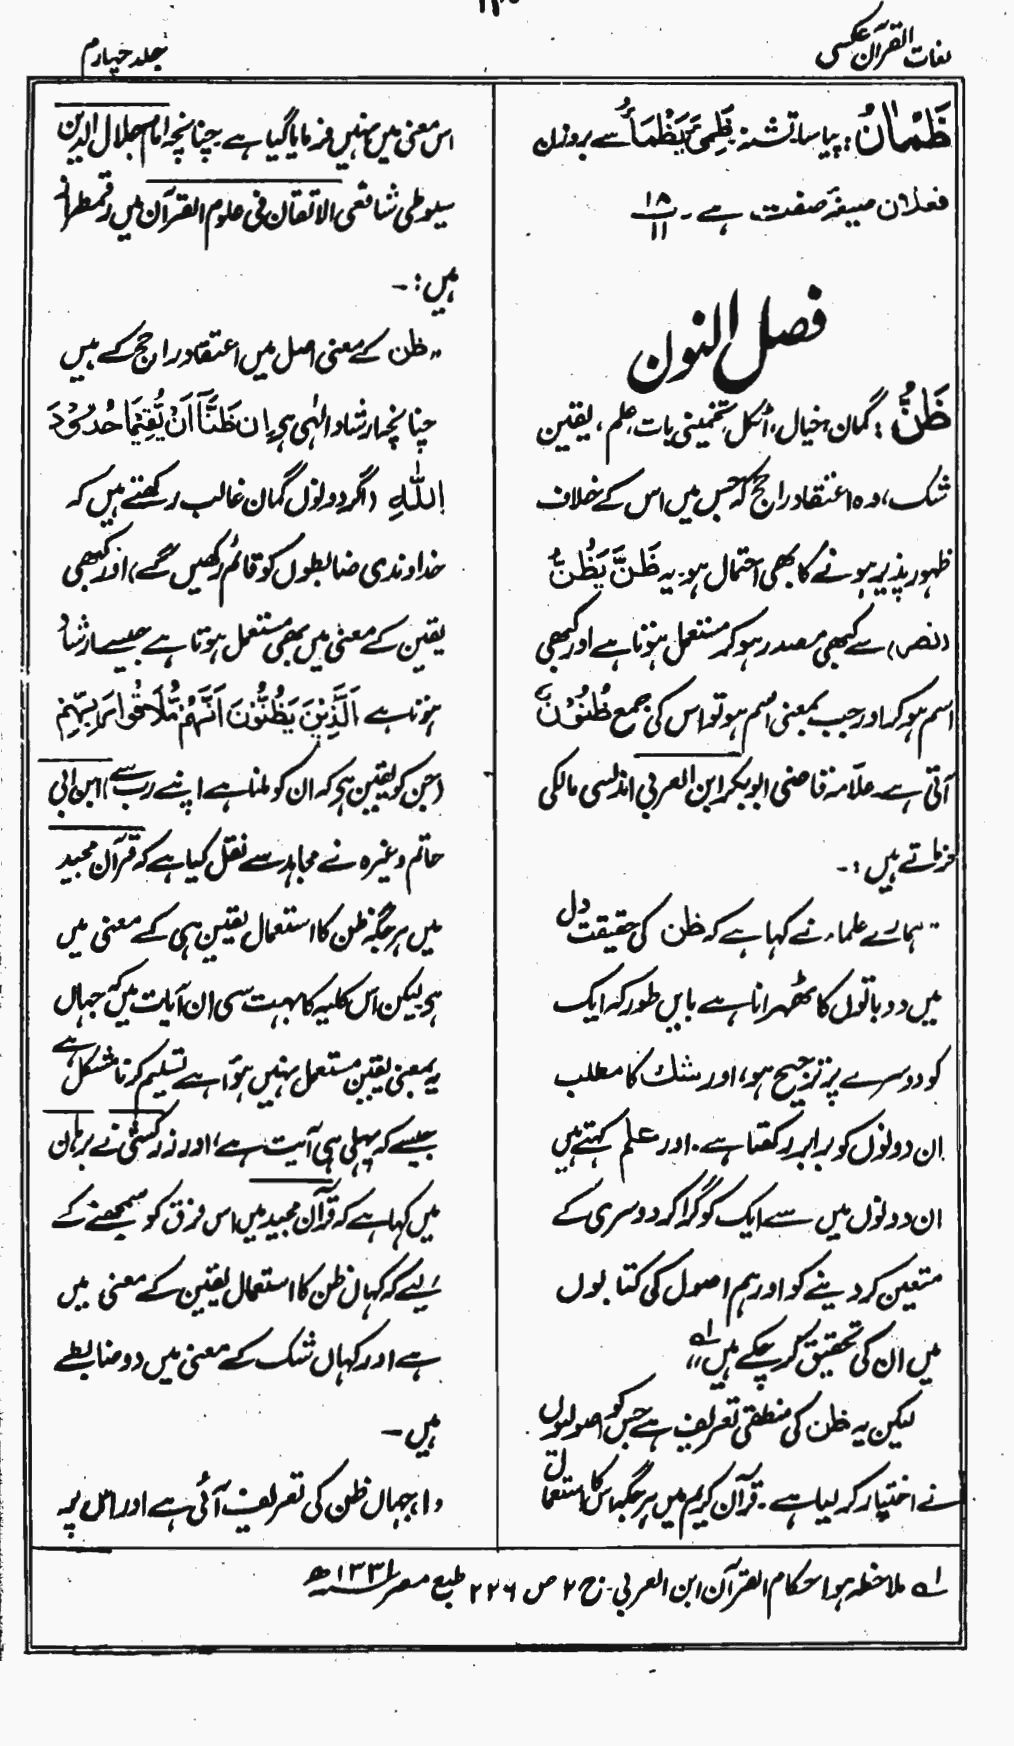 لغات القرآن عکسی
جلد چہارم
ظَمْاٰنُ: پیاسا، تشنہ، ظَمِیَ یَظْمَأُ سے بروزن
فعلان صیغۂ صفت ہے۔ ۱۸/۱۱
فصل النون
ظَنٌّ: گمان، خیال، اٹکل، تخمینی بات، علم، یقین
شک، وہ اعتقاد راجح کہ جس میں اس کے خلاف
ظہور پذیر ہونے کا بھی احتمال ہو۔ یہ ظَنَّ یَظُنُّ
(نصر) سے کبھی مصدر ہو کر مستعمل ہوتا ہے اور کبھی
اسم ہو کر اور جب بمعنی اسم ہو تو اس کی جمع ظُنُوْنٌ
آتی ہے۔ علامہ قاضی ابوبکر ابن العربی اندلسی مالکی
فرماتے ہیں:۔
"ہمارے علماء نے کہا ہے کہ ظن کی حقیقت دل
میں دو باتوں کا ٹھہرانا ہے بایں طور کہ ایک
کو دوسرے پر ترجیح ہو، اور شک کا مطلب
ان دونوں کو برابر رکھنا ہے۔ اور علم کہتے ہیں
ان دونوں میں سے ایک کو گرا کر دوسری کے
متعین کر دینے کو اور ہم اصول کی کتابوں
میں ان کی تحقیق کر چکے ہیں" ؂۱
لیکن یہ ظن کی منطقی تعریف ہے جس کو اصولیوں
نے اختیار کر لیا ہے۔ قرآن کریم میں ہر جگہ اس کا استعمال
اس معنی میں نہیں فرمایا گیا ہے۔ چنانچہ امام جلال الدین
سیوطی شافعی الاتقان فی علوم القرآن میں رقمطراز
ہیں:۔
"ظن کے معنی اصل میں اعتقاد راجح کے ہیں
چنانچہ ارشاد الٰہی ہے اِنْ ظَنَّآ اَنْ یُّقِیْمَا حُدُوْدَ
اللّٰهِ (اگر دونوں گمان غالب رکھتے ہیں کہ
خداوندی ضابطوں کو قائم رکھیں گے) اور کبھی
یقین کے معنی میں بھی مستعمل ہوتا ہے جیسے ارشاد
ہوتا ہے اَلَّذِیْنَ یَظُنُّوْنَ اَنَّهُمْ مُّلَاقُوْا رَبِّهِمْ
(جن کو یقین ہے کہ ان کو ملنا ہے اپنے رب سے) ابن ابی
حاتم وغیرہ نے مجاہد سے نقل کیا ہے کہ قرآن مجید
میں ہر جگہ ظن کا استعمال یقین ہی کے معنی میں
ہے لیکن اس کلیہ کا بہت سی ان آیات میں کہ جہاں
یہ بمعنی یقین مستعمل نہیں ہوا ہے تسلیم کرنا مشکل ہے
جیسے کہ پہلی ہی آیت ہے، اور زرکشی نے برہان
میں کہا ہے کہ قرآن مجید میں اس فرق کو سمجھنے کے
لیے کہ کہاں ظن کا استعمال یقین کے معنی میں
ہے اور کہاں شک کے معنی میں دو ضابطے
ہیں۔
(۱) جہاں ظن کی تعریف آئی ہے اور اس پر
؂۱ ملاحظہ ہو احکام القرآن ابن العربی۔ ج ۲ ص ۲۲۶ طبع مصر ۱۳۳۱ھ